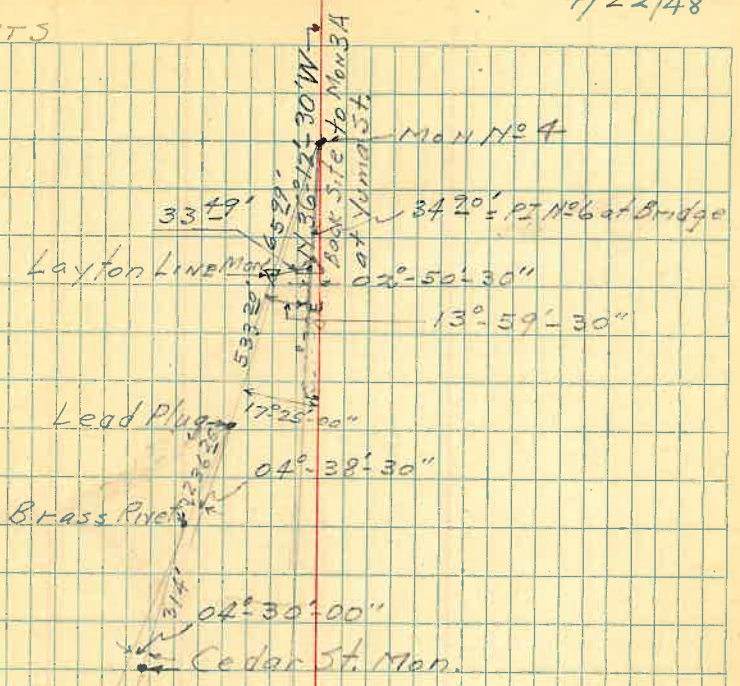 TS
/22/48
N 36°-12'-30"W
Back Site to Mon 3A
at Yuma St.
Mon Nº 4
65 99'
33 49'
34 20' = PI Nº 6 at Bridge
Layton LINE Mon
02°-50'-30"
13°-59'-30"
533 20'
17°-25'-00"
Lead Plug
04°-38'-30"
Brass Rivet
314'
04°-30'-00"
Cedar St. Mon.